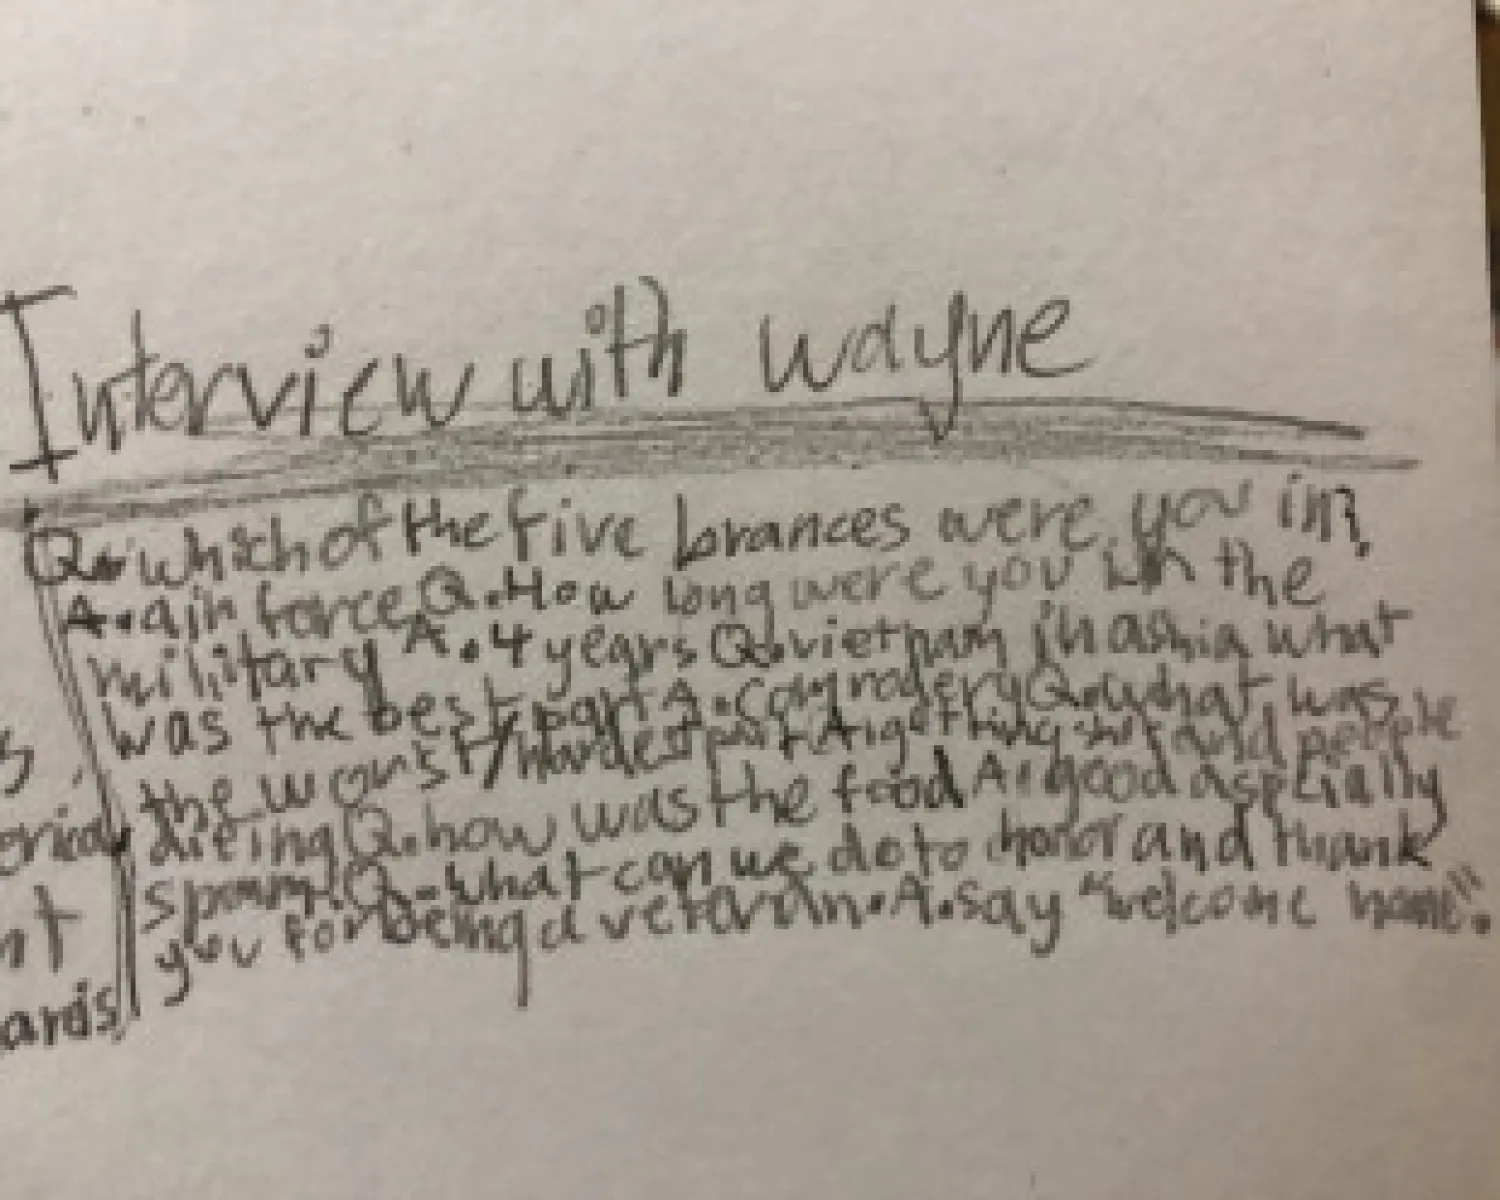 Interview with wayne
Q. which of the five brances were you in?
A. air force Q. How long were you in the
military A. 4 years Q. vietnam in ashia what
was the best part A. comrodery Q. what was
the worst/hardest part A. gething shot and people
dieing Q. how was the food A. good aspcially
spam. Q. what can we do to honor and thank
you for being a veteran. A. say "welcome home".
s
nt
ards